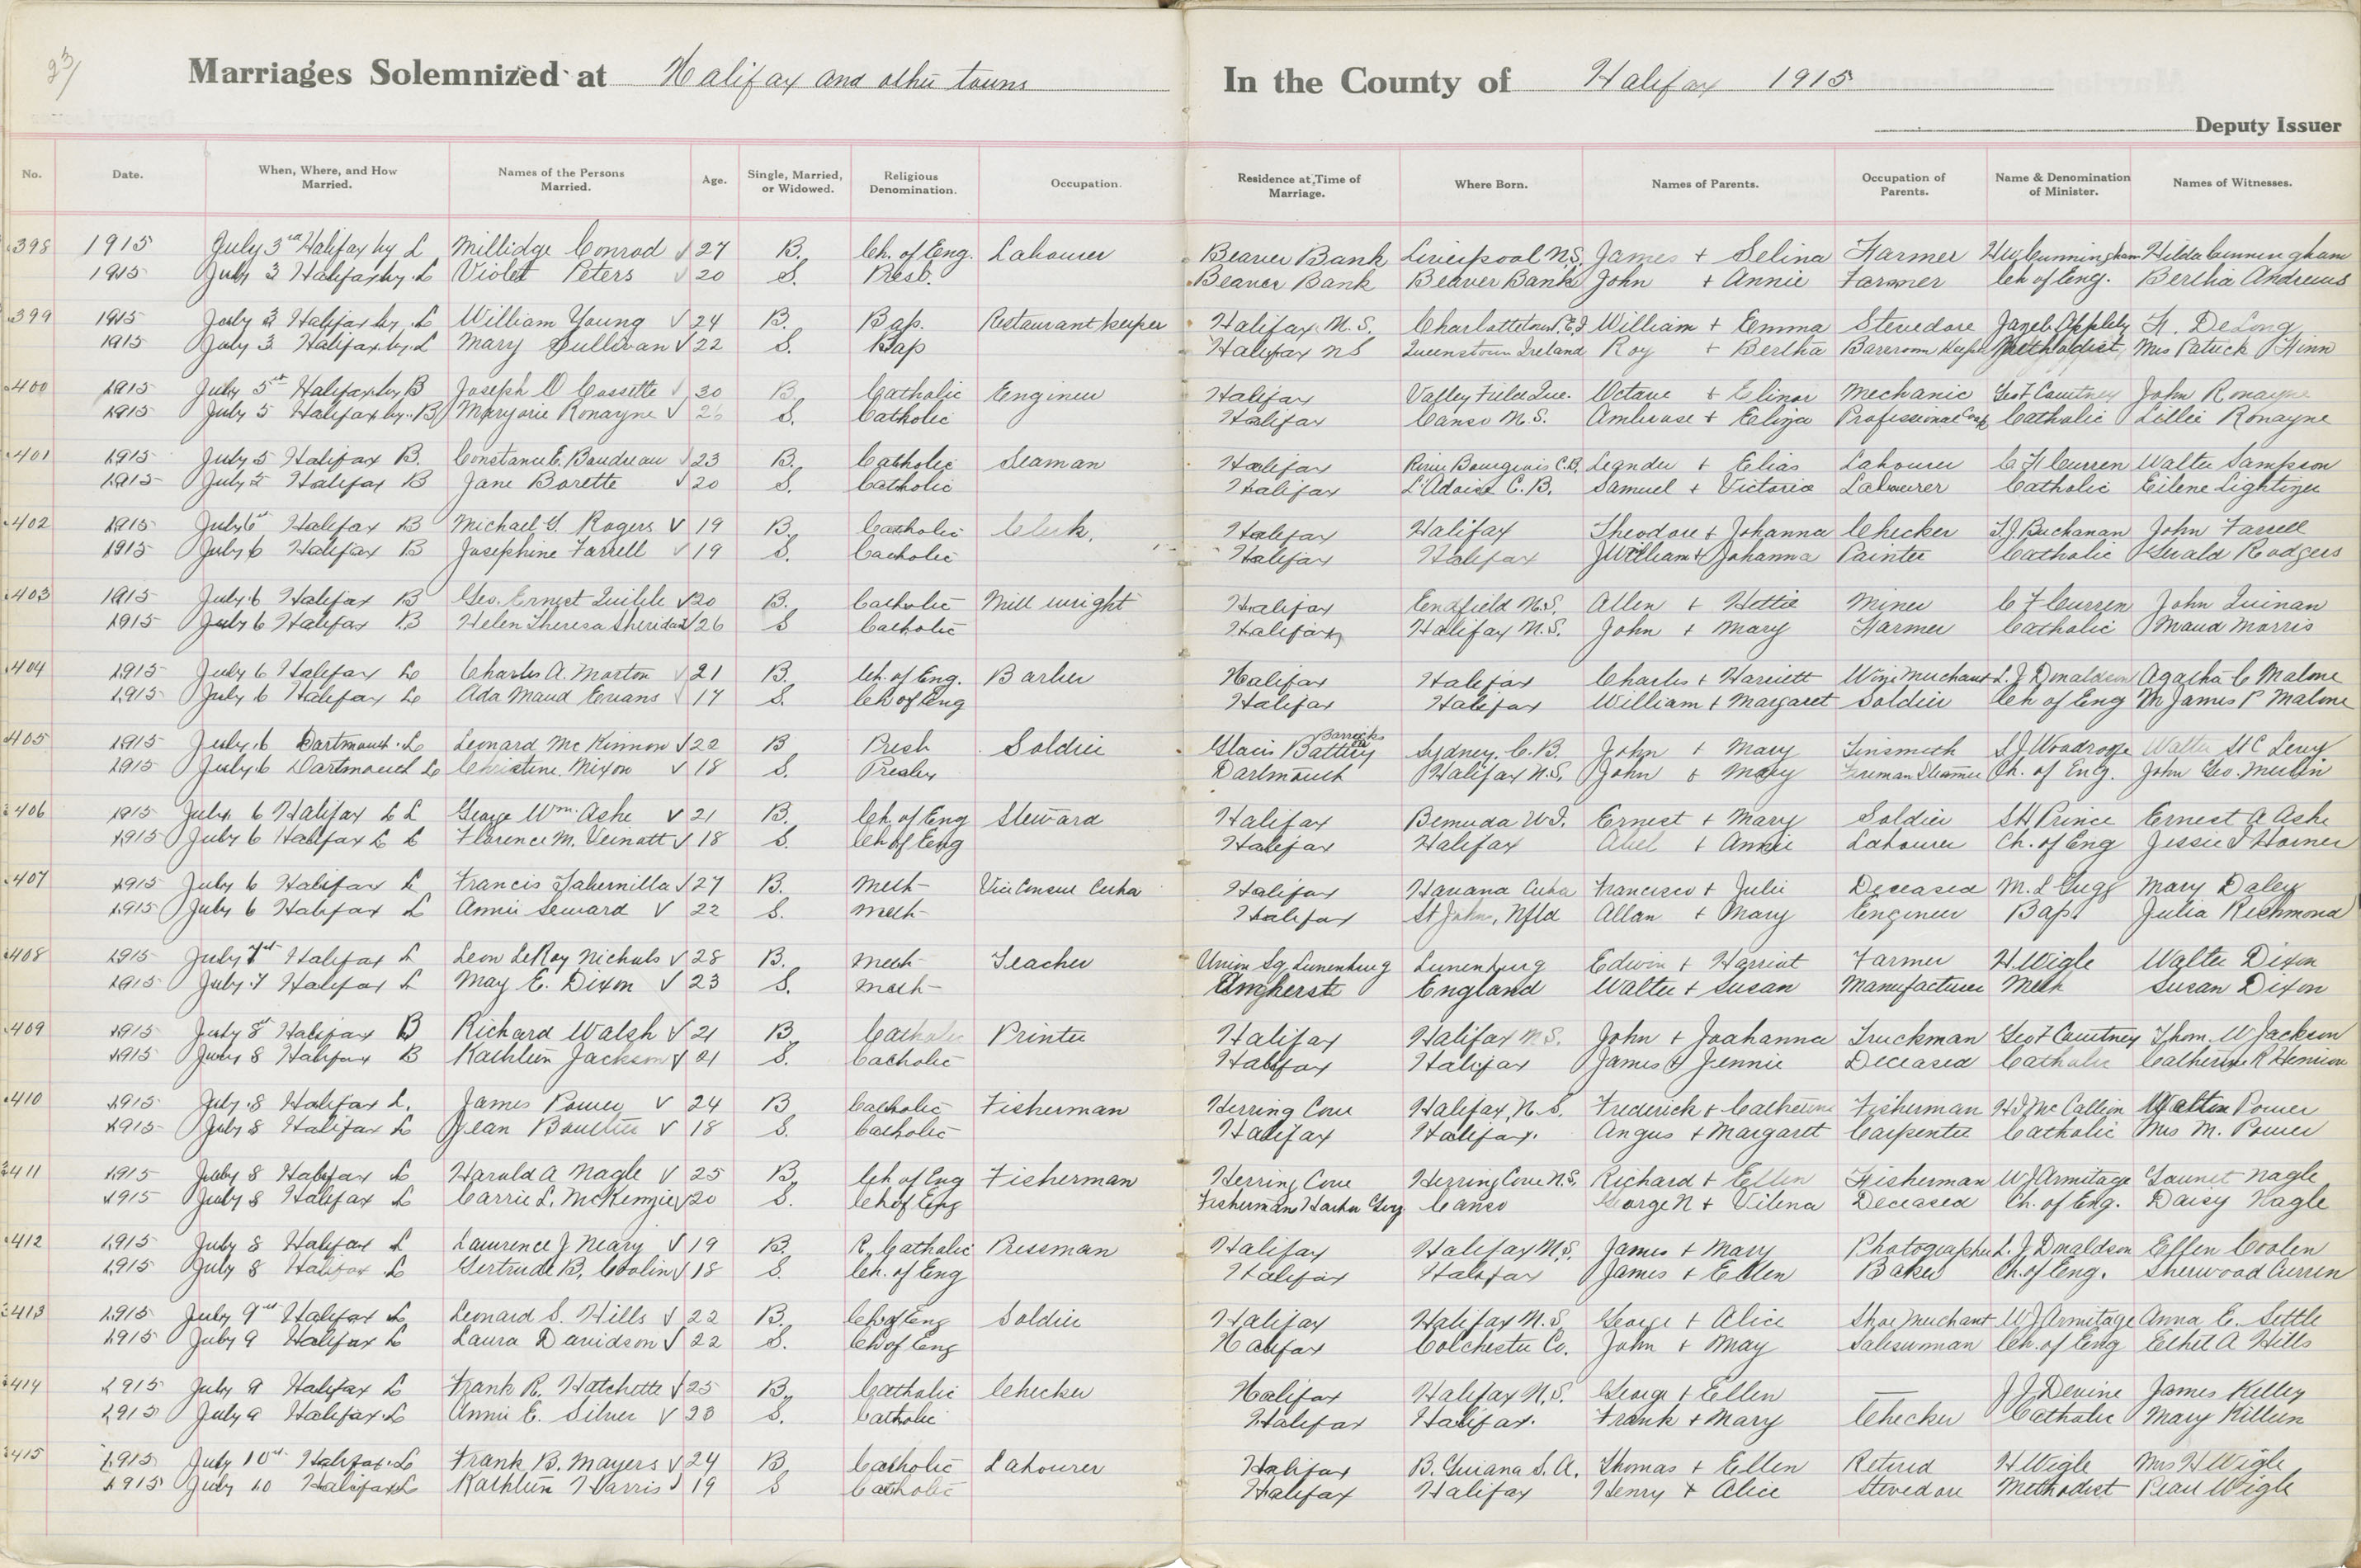 231
Marriages Solemnized at Halifax and other towns In the County of Halifax 1915
Deputy Issuer
No. Date. When, Where, and How Married. Names of the Persons Married. Age. Single, Married, or Widowed. Religious Denomination. Occupation. Residence at Time of Marriage. Where Born. Names of Parents. Occupation of Parents. Name & Denomination of Minister. Names of Witnesses.
398 1915 July 3rd Halifax by L Millidge Conrod 27 B. Ch. of Eng. Labourer Beaver Bank Liverpool N.S. James + Selina Farmer HW Cunningham Hilda Cunningham
1915 July 3 Halifax by L Violet Peters 20 S. Presb. Beaver Bank Beaver Bank John + Annie Farmer Ch of Eng. Bertha Andrews
399 1915 July 3 Halifax by L William Young 24 B. Bap. Restaurant keeper Halifax N.S. Charlottetown P.E.I William + Emma Stevedore Appleby DeLong
1915 July 3 Halifax by L Mary Sullivan 22 S. Bap Halifax NS Queenstown Ireland Roy + Bertha Barroom Keeper Methodist Mrs Patrick Finn
400 1915 July 5 Halifax by B Joseph O Cossette 30 B. Catholic Engineer Halifax Valley Field Que. Octave + Elinor Mechanic Geo F Courtney John Ronayne
1915 July 5 Halifax by B Maryorie Ronayne 26 S. Catholic Halifax Canso N.S. Ambrose + Eliza Professional Cook Catholic Lillie Ronayne
401 1915 July 5 Halifax B. Constance E. Boudreau 23 B. Catholic Seaman Halifax River Bourgeois C.B. Leander + Elias Labourer C F Curren Walter Sampson
1915 July 5 Halifax B Jane Borette 20 S. Catholic Halifax L'Adoise C.B. Samuel + Victoria Labourer Catholic Eilene Lightizer
402 1915 July 6 Halifax B Michael G. Rogers 19 B. Catholic Clerk. Halifax Halifax Theodore + Johanna Checker T.J. Buchanan John Farrell
1915 July 6 Halifax B Josephine Farrell 19 S. Catholic Halifax Halifax William + Johanna Painter Catholic Gerald Rodgers
403 1915 July 6 Halifax B Geo. Ernest 20 B. Catholic Mill wright Halifax Enfield N.S. Allen + Hettie Miner C F Curren John Quinan
1915 July 6 Halifax B Helen Theresa Sheridan 26 S Catholic Halifax Halifax N.S. John + Mary Farmer Catholic Maud Morris
404 1915 July 6 Halifax L Charles A. Morton 21 B. Ch. of Eng. Barber Halifax Halifax Charles + Harriett Wine Merchant L. J Donaldson Agatha C Malone
1915 July 6 Halifax L Ada Maud Evans 17 S. Ch of Eng Halifax Halifax William + Margaret Soldier Ch of Eng James P Malone
405 1915 July 6 Dartmouth L Leonard McKinnon 22 B Presb Soldier Glacis Battery Barracks Sydney, C.B John + Mary Tinsmith S J Woodroofe Walter St C Levy
1915 July 6 Dartmouth L Christine Nixon 18 S. Presby Dartmouth Halifax N.S. John & Mary Fireman Steamer Ch. of Eng. John Geo. Merlin
406 1915 July 6 Halifax L George Wm. Ashe 21 B. Ch. of Eng Steward Halifax Bermuda W.I. Ernest + Mary Soldier S H Prince Ernest A Ashe
1915 July 6 Halifax L Florence M. Veinott 18 S. Ch of Eng Halifax Halifax Abel + Annie Labourer Ch. of Eng Jessie I Horner
407 1915 July 6 Halifax L Francis Tabernilla 27 B. Meth Vice Consul Cuba Halifax Havana Cuba Francisco + Julie Deceased M. L Gregg Mary Daley
1915 July 6 Halifax L Annie Seward 22 S. Meth Halifax St Johns, Nfld Allan + Mary Engineer Bap. Julia Richmond
408 1915 July 7 Halifax L Leon LeRoy Nichols 28 B. Meth Teacher Union Sq Lunenburg Lunenburg Edwin + Harriat Farmer H Wigle Walter Dixon
1915 July 7 Halifax L May E. Dixon 23 S. Meth Amherst England Walter + Susan Manufacturer Meth Susan Dixon
409 1915 July 8 Halifax B Richard Walsh 21 B Catholic Printer Halifax Halifax N.S. John + Joahanna Truckman Geo F Courtney Thom. W Jackson
1915 July 8 Halifax B Kathleen Jackson 21 S. Catholic Halifax Halifax James + Jennie Deceased Catholic Catherine R
410 1915 July 8 Halifax L. James Power 24 B Catholic Fisherman Herring Cove Halifax, N.S. Frederick + Catherine Fisherman McCallion Walton Power
1915 July 8 Halifax L Jean Boutlier 18 S. Catholic Halifax Halifax. Angus + Margaret Carpenter Catholic Mrs M. Power
411 1915 July 8 Halifax L Harold A Nagle 25 B. Ch of Eng Fisherman Herring Cove Herring Cove N.S. Richard + Ellen Fisherman W J Armitage Nagle
1915 July 8 Halifax L Carrie L. McKenzie 20 S. Ch of Eng Fishermans Harbor Guys Canso George N + Vilena Deceased Ch. of Eng. Daisy Nagle
412 1915 July 8 Halifax L Lawrence J Neary 19 B. R. Catholic Pressman Halifax Halifax N.S. James + Mary Photographer L. J Donaldson Ellen Coolen
1915 July 8 Halifax L Gertrude B. Coolin 18 S. Ch. of Eng Halifax Halifax James + Ellen Baker Ch. of Eng. Sherwood Curren
413 1915 July 9 Halifax L Leonard S. Hills 22 B. Ch of Eng Soldier Halifax Halifax N.S. George + Alice Shoe Merchant W J Armitage Anna E. Settle
1915 July 9 Halifax L Laura Davidson 22 S. Ch of Eng Halifax Colchester Co. John + May Saleswoman Ch. of Eng Ethel A Hills
414 1915 July 9 Halifax L Frank R. Hatchette 25 B. Catholic Checker Halifax Halifax N.S. George + Ellen — J J Devine James Kelley
1915 July 9 Halifax L Annie E. Silver 23 S. Catholic Halifax Halifax. Frank + Mary Checker Catholic Mary Killeen
415 1915 July 10 Halifax L Frank B. Mayers 24 B Catholic Labourer Halifax B. Guiana S.A. Thomas + Ellen Retired H Wigle Mrs H Wigle
1915 July 10 Halifax L Kathleen Harris 19 S Catholic Halifax Halifax Henry + Alice Stevedore Methodist Pearl Wigle